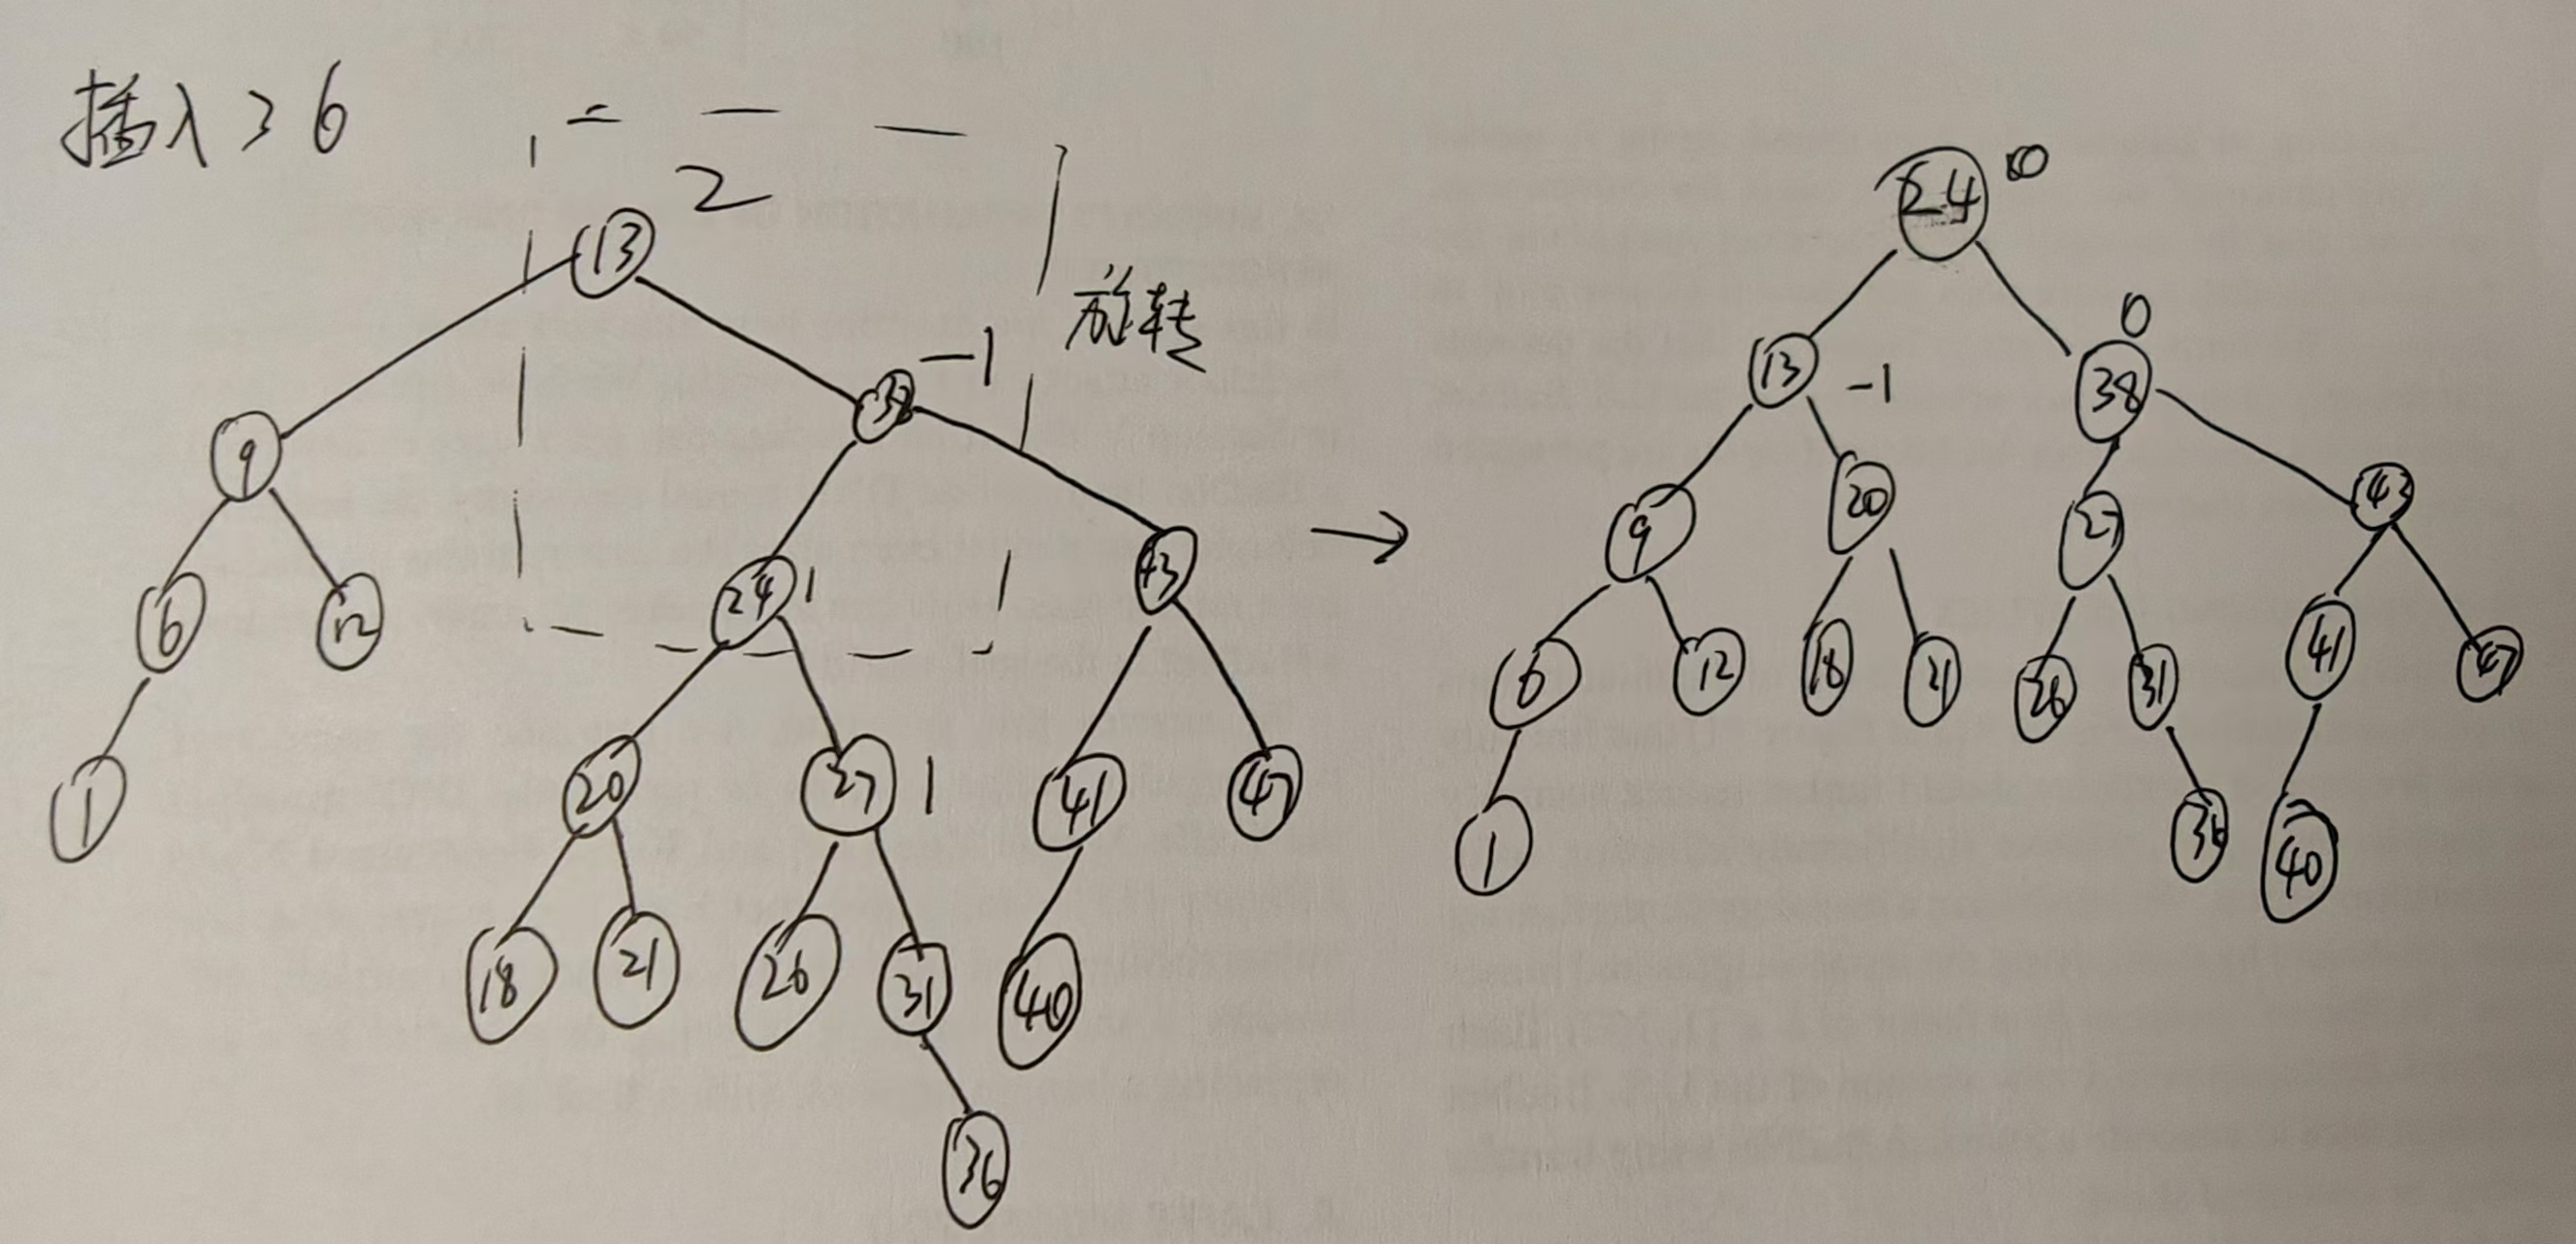 插入36
2
13
旋转
-1
9
38
6
12
24
1
43
1
20
27
1
41
47
18
21
26
31
40
36
24
0
0
13
-1
38
9
20
27
43
6
12
18
21
26
31
41
47
1
36
40